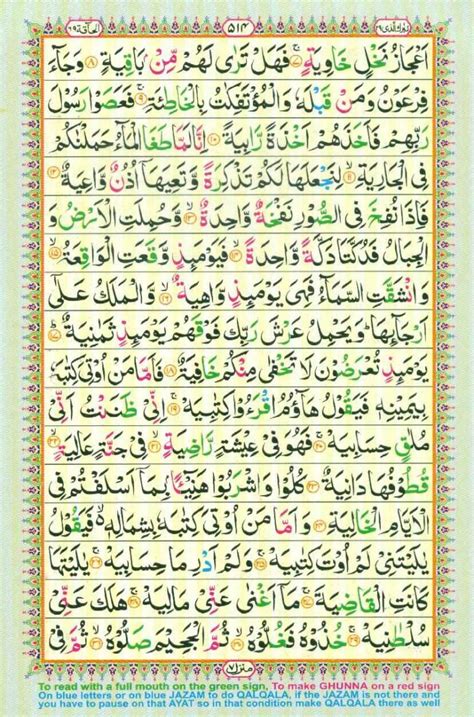 تبٰرك الذی ۲۹ ۵۱۴ الحآقة ۶۹
اَعْجَازُ نَخْلٍ خَاوِيَةٍ ۷ فَهَلْ تَرٰى لَهُمْ مِّنْۢ بَاقِيَةٍ ۸ وَجَآءَ
فِرْعَوْنُ وَمَنْ قَبْلَهٗ وَالْمُؤْتَفِكٰتُ بِالْخَاطِئَةِ ۹ فَعَصَوْا رَسُوْلَ
رَبِّهِمْ فَاَخَذَهُمْ اَخْذَةً رَّابِيَةً ۱۰ اِنَّا لَمَّا طَغَا الْمَآءُ حَمَلْنٰكُمْ
فِى الْجَارِيَةِ ۱۱ لِنَجْعَلَهَا لَكُمْ تَذْكِرَةً وَّتَعِيَهَاۤ اُذُنٌ وَّاعِيَةٌ ۱۲
فَاِذَا نُفِخَ فِى الصُّوْرِ نَفْخَةٌ وَّاحِدَةٌ ۱۳ وَّحُمِلَتِ الْاَرْضُ وَ
الْجِبَالُ فَدُكَّتَا دَكَّةً وَّاحِدَةً ۱۴ فَيَوْمَئِذٍ وَّقَعَتِ الْوَاقِعَةُ ۱۵
وَانْشَقَّتِ السَّمَآءُ فَهِىَ يَوْمَئِذٍ وَّاهِيَةٌ ۱۶ وَّالْمَلَكُ عَلٰٓى
اَرْجَآئِهَا ؕ وَيَحْمِلُ عَرْشَ رَبِّكَ فَوْقَهُمْ يَوْمَئِذٍ ثَمٰنِيَةٌ ۱۷
يَوْمَئِذٍ تُعْرَضُوْنَ لَا تَخْفٰى مِنْكُمْ خَافِيَةٌ ۱۸ فَاَمَّا مَنْ اُوْتِىَ كِتٰبَهٗ
بِيَمِيْنِهٖ فَيَقُوْلُ هَآؤُمُ اقْرَءُوْا كِتٰبِيَهْ ۱۹ اِنِّىْ ظَنَنْتُ اَنِّىْ
مُلٰقٍ حِسَابِيَهْ ۲۰ فَهُوَ فِىْ عِيْشَةٍ رَّاضِيَةٍ ۲۱ فِىْ جَنَّةٍ عَالِيَةٍ ۲۲
قُطُوْفُهَا دَانِيَةٌ ۲۳ كُلُوْا وَاشْرَبُوْا هَنِيْٓئًۢا بِمَاۤ اَسْلَفْتُمْ فِى
الْاَيَّامِ الْخَالِيَةِ ۲۴ وَاَمَّا مَنْ اُوْتِىَ كِتٰبَهٗ بِشِمَالِهٖ فَيَقُوْلُ
يٰلَيْتَنِىْ لَمْ اُوْتَ كِتٰبِيَهْ ۲۵ وَلَمْ اَدْرِ مَا حِسَابِيَهْ ۲۶ يٰلَيْتَهَا
كَانَتِ الْقَاضِيَةَ ۲۷ مَاۤ اَغْنٰى عَنِّىْ مَالِيَهْ ۲۸ هَلَكَ عَنِّىْ
سُلْطٰنِيَهْ ۲۹ خُذُوْهُ فَغُلُّوْهُ ۳۰ ثُمَّ الْجَحِيْمَ صَلُّوْهُ ۳۱ ثُمَّ فِىْ
منزل ۷
To read with a full mouth on the green sign, To make GHUNNA on a red sign
On blue letters or on blue JAZAM to do QALQALA, if the JAZAM is not there and
you have to pause on that AYAT so in that condition make QALQALA there as well